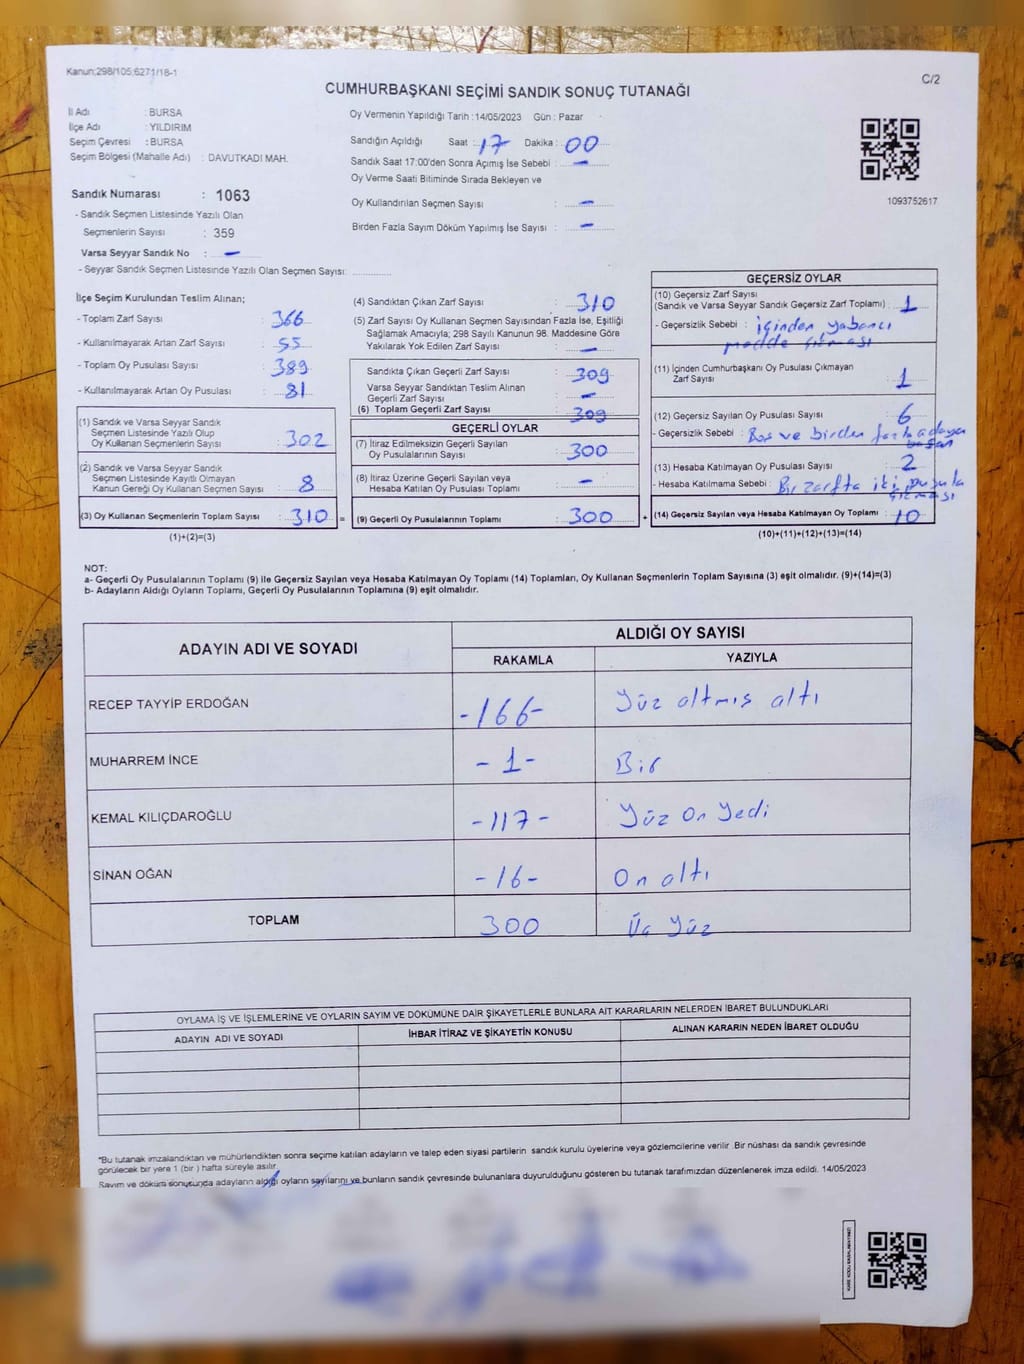 Kanun:298/105;6271/18-1
C/2
CUMHURBAŞKANI SEÇİMİ SANDIK SONUÇ TUTANAĞI
İl Adı : BURSA
İlçe Adı : YILDIRIM
Seçim Çevresi : BURSA
Seçim Bölgesi (Mahalle Adı) : DAVUTKADI MAH.
Sandık Numarası : 1063
- Sandık Seçmen Listesinde Yazılı Olan
Seçmenlerin Sayısı : 359
Varsa Seyyar Sandık No : -
- Seyyar Sandık Seçmen Listesinde Yazılı Olan Seçmen Sayısı:
Oy Vermenin Yapıldığı Tarih : 14/05/2023 Gün : Pazar
Sandığın Açıldığı Saat : 17 Dakika : 00
Sandık Saat 17:00'den Sonra Açımış İse Sebebi : -
Oy Verme Saati Bitiminde Sırada Bekleyen ve
Oy Kullandırılan Seçmen Sayısı : -
Birden Fazla Sayım Döküm Yapılmış İse Sayısı : -
1093752617
İlçe Seçim Kurulundan Teslim Alınan;
- Toplam Zarf Sayısı : 366
- Kullanılmayarak Artan Zarf Sayısı : 55
- Toplam Oy Pusulası Sayısı : 389
- Kullanılmayarak Artan Oy Pusulası : 81
(1) Sandık ve Varsa Seyyar Sandık
Seçmen Listesinde Yazılı Olup
Oy Kullanan Seçmenlerin Sayısı : 302
(2) Sandık ve Varsa Seyyar Sandık
Seçmen Listesinde Kayıtlı Olmayan
Kanun Gereği Oy Kullanan Seçmen Sayısı : 8
(3) Oy Kullanan Seçmenlerin Toplam Sayısı : 310 =
(1)+(2)=(3)
(4) Sandıktan Çıkan Zarf Sayısı : 310
(5) Zarf Sayısı Oy Kullanan Seçmen Sayısından Fazla İse, Eşitliği
Sağlamak Amacıyla; 298 Sayılı Kanunun 98. Maddesine Göre
Yakılarak Yok Edilen Zarf Sayısı : -
Sandıkta Çıkan Geçerli Zarf Sayısı : 309
Varsa Seyyar Sandıktan Teslim Alınan
Geçerli Zarf Sayısı : -
(6) Toplam Geçerli Zarf Sayısı : 309
GEÇERLİ OYLAR
(7) İtiraz Edilmeksizin Geçerli Sayılan
Oy Pusulalarının Sayısı : 300
(8) İtiraz Üzerine Geçerli Sayılan veya
Hesaba Katılan Oy Pusulası Toplamı : -
(9) Geçerli Oy Pusulalarının Toplamı : 300 +
GEÇERSİZ OYLAR
(10) Geçersiz Zarf Sayısı
(Sandık ve Varsa Seyyar Sandık Geçersiz Zarf Toplamı) : 1
- Geçersizlik Sebebi : İçinden yabancı
madde çıkması
(11) İçinden Cumhurbaşkanı Oy Pusulası Çıkmayan
Zarf Sayısı : 1
(12) Geçersiz Sayılan Oy Pusulası Sayısı : 6
- Geçersizlik Sebebi : Boş ve birden fazla adaya
basan
(13) Hesaba Katılmayan Oy Pusulası Sayısı : 2
- Hesaba Katılmama Sebebi : Bir zarfta iki pusula
çıkması
(14) Geçersiz Sayılan veya Hesaba Katılmayan Oy Toplamı : 10
(10)+(11)+(12)+(13)=(14)
NOT:
a- Geçerli Oy Pusulalarının Toplamı (9) ile Geçersiz Sayılan veya Hesaba Katılmayan Oy Toplamı (14) Toplamları, Oy Kullanan Seçmenlerin Toplam Sayısına (3) eşit olmalıdır. (9)+(14)=(3)
b- Adayların Aldığı Oyların Toplamı, Geçerli Oy Pusulalarının Toplamına (9) eşit olmalıdır.
ADAYIN ADI VE SOYADI
ALDIĞI OY SAYISI
RAKAMLA YAZIYLA
RECEP TAYYİP ERDOĞAN -166- Yüz altmış altı
MUHARREM İNCE -1- Bir
KEMAL KILIÇDAROĞLU -117- Yüz On Yedi
SİNAN OĞAN -16- On altı
TOPLAM 300 Üç Yüz
OYLAMA İŞ VE İŞLEMLERİNE VE OYLARIN SAYIM VE DÖKÜMÜNE DAİR ŞİKAYETLERLE BUNLARA AİT KARARLARIN NELERDEN İBARET BULUNDUKLARI
ADAYIN ADI VE SOYADI İHBAR İTİRAZ VE ŞİKAYETİN KONUSU ALINAN KARARIN NEDEN İBARET OLDUĞU
*Bu tutanak imzalandıktan ve mühürlendikten sonra seçime katılan adayların ve talep eden siyasi partilerin sandık kurulu üyelerine veya gözlemcilerine verilir. Bir nüshası da sandık çevresinde
görülecek bir yere 1 (bir ) hafta süreyle asılır.
Sayım ve döküm sonusunda adayların aldığı oyların sayılarını ve bunların sandık çevresinde bulunanlara duyurulduğunu gösteren bu tutanak tarafımızdan düzenlenerek imza edildi. 14/05/2023